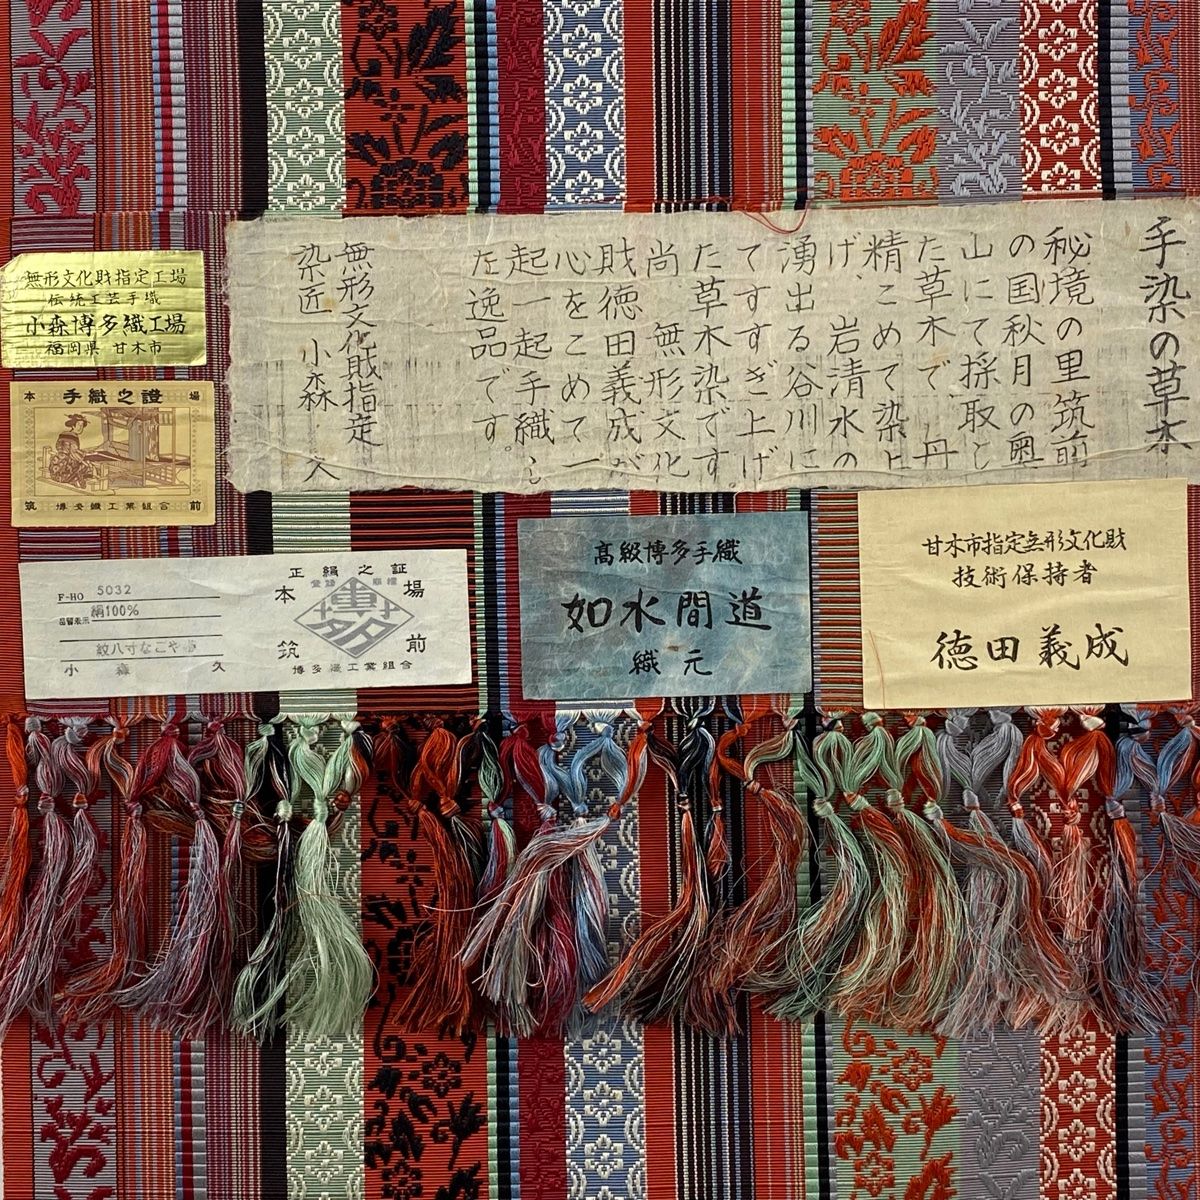 手染の草木
秘境の里筑前
の国秋月の奥
山にて採取し
た草木で、丹
精こめて染上
げ、岩清水の
湧出る谷川に
てすすぎ上げ
た草木染です
尚、無形文化
財徳田義成が
心をこめて一
起一起手織し
た逸品です。
無形文化財指定
染匠 小森 久
無形文化財指定工場
伝統工芸手織
小森博多織工場
福岡県 甘木市
本 手織之證 場
筑 博多織工業組合 前
正絹之証
F-HO 5032
品質表示 絹100%
紋八寸なごや帯
小森 久
登録 商標
本 場
筑 前
博多織工業組合
高級博多手織
如水間道
織元
甘木市指定無形文化財
技術保持者
徳田義成